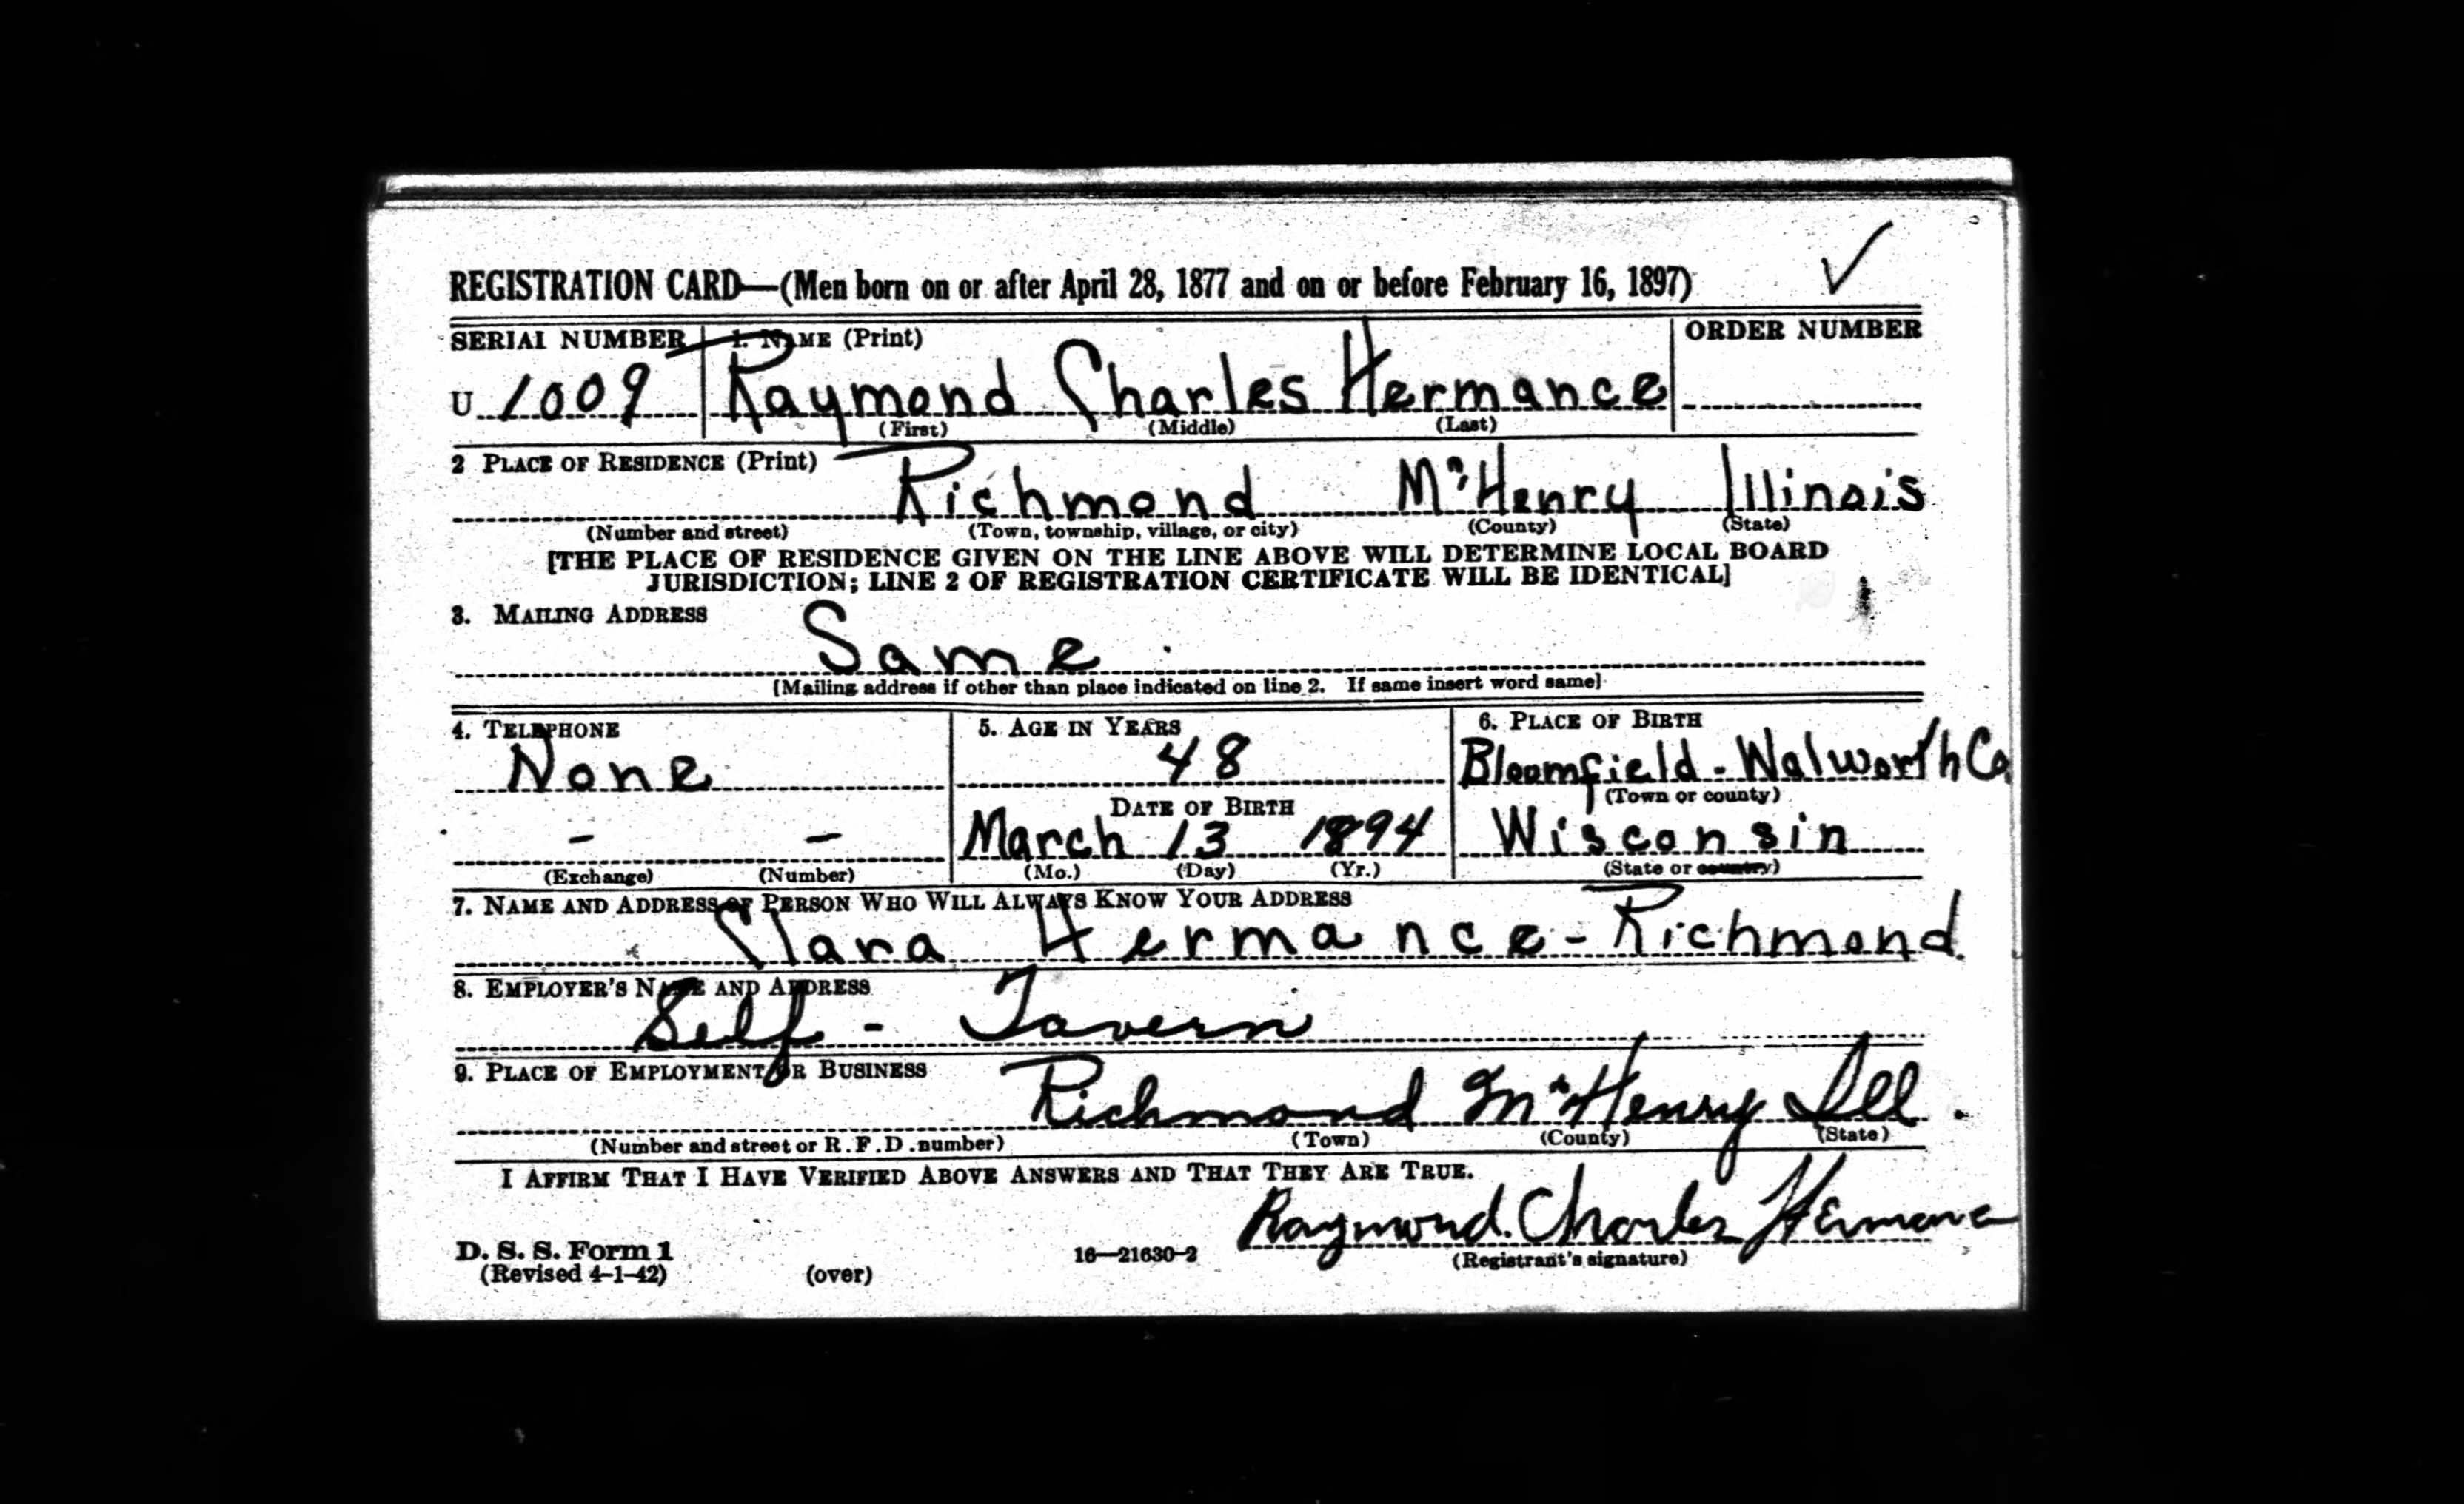 REGISTRATION CARD—(Men born on or after April 28, 1877 and on or before February 16, 1897)
SERIAL NUMBER 1. NAME (Print) ORDER NUMBER
U 1009 Raymond Charles Hermance
(First) (Middle) (Last)
2 PLACE OF RESIDENCE (Print)
Richmond McHenry Illinois
(Number and street) (Town, township, village, or city) (County) (State)
[THE PLACE OF RESIDENCE GIVEN ON THE LINE ABOVE WILL DETERMINE LOCAL BOARD
JURISDICTION; LINE 2 OF REGISTRATION CERTIFICATE WILL BE IDENTICAL]
3. MAILING ADDRESS
Same
[Mailing address if other than place indicated on line 2. If same insert word same]
4. TELEPHONE 5. AGE IN YEARS 6. PLACE OF BIRTH
None 48 Bloomfield - Walworth Co
DATE OF BIRTH (Town or county)
- - March 13 1894 Wisconsin
(Exchange) (Number) (Mo.) (Day) (Yr.) (State or country)
7. NAME AND ADDRESS OF PERSON WHO WILL ALWAYS KNOW YOUR ADDRESS
Clara Hermance - Richmond.
8. EMPLOYER'S NAME AND ADDRESS
Self - Tavern
9. PLACE OF EMPLOYMENT OR BUSINESS
Richmond McHenry Ill.
(Number and street or R.F.D. number) (Town) (County) (State)
I AFFIRM THAT I HAVE VERIFIED ABOVE ANSWERS AND THAT THEY ARE TRUE.
Raymond Charles Hermance
D. S. S. Form 1 16—21630-2 (Registrant's signature)
(Revised 4-1-42) (over)